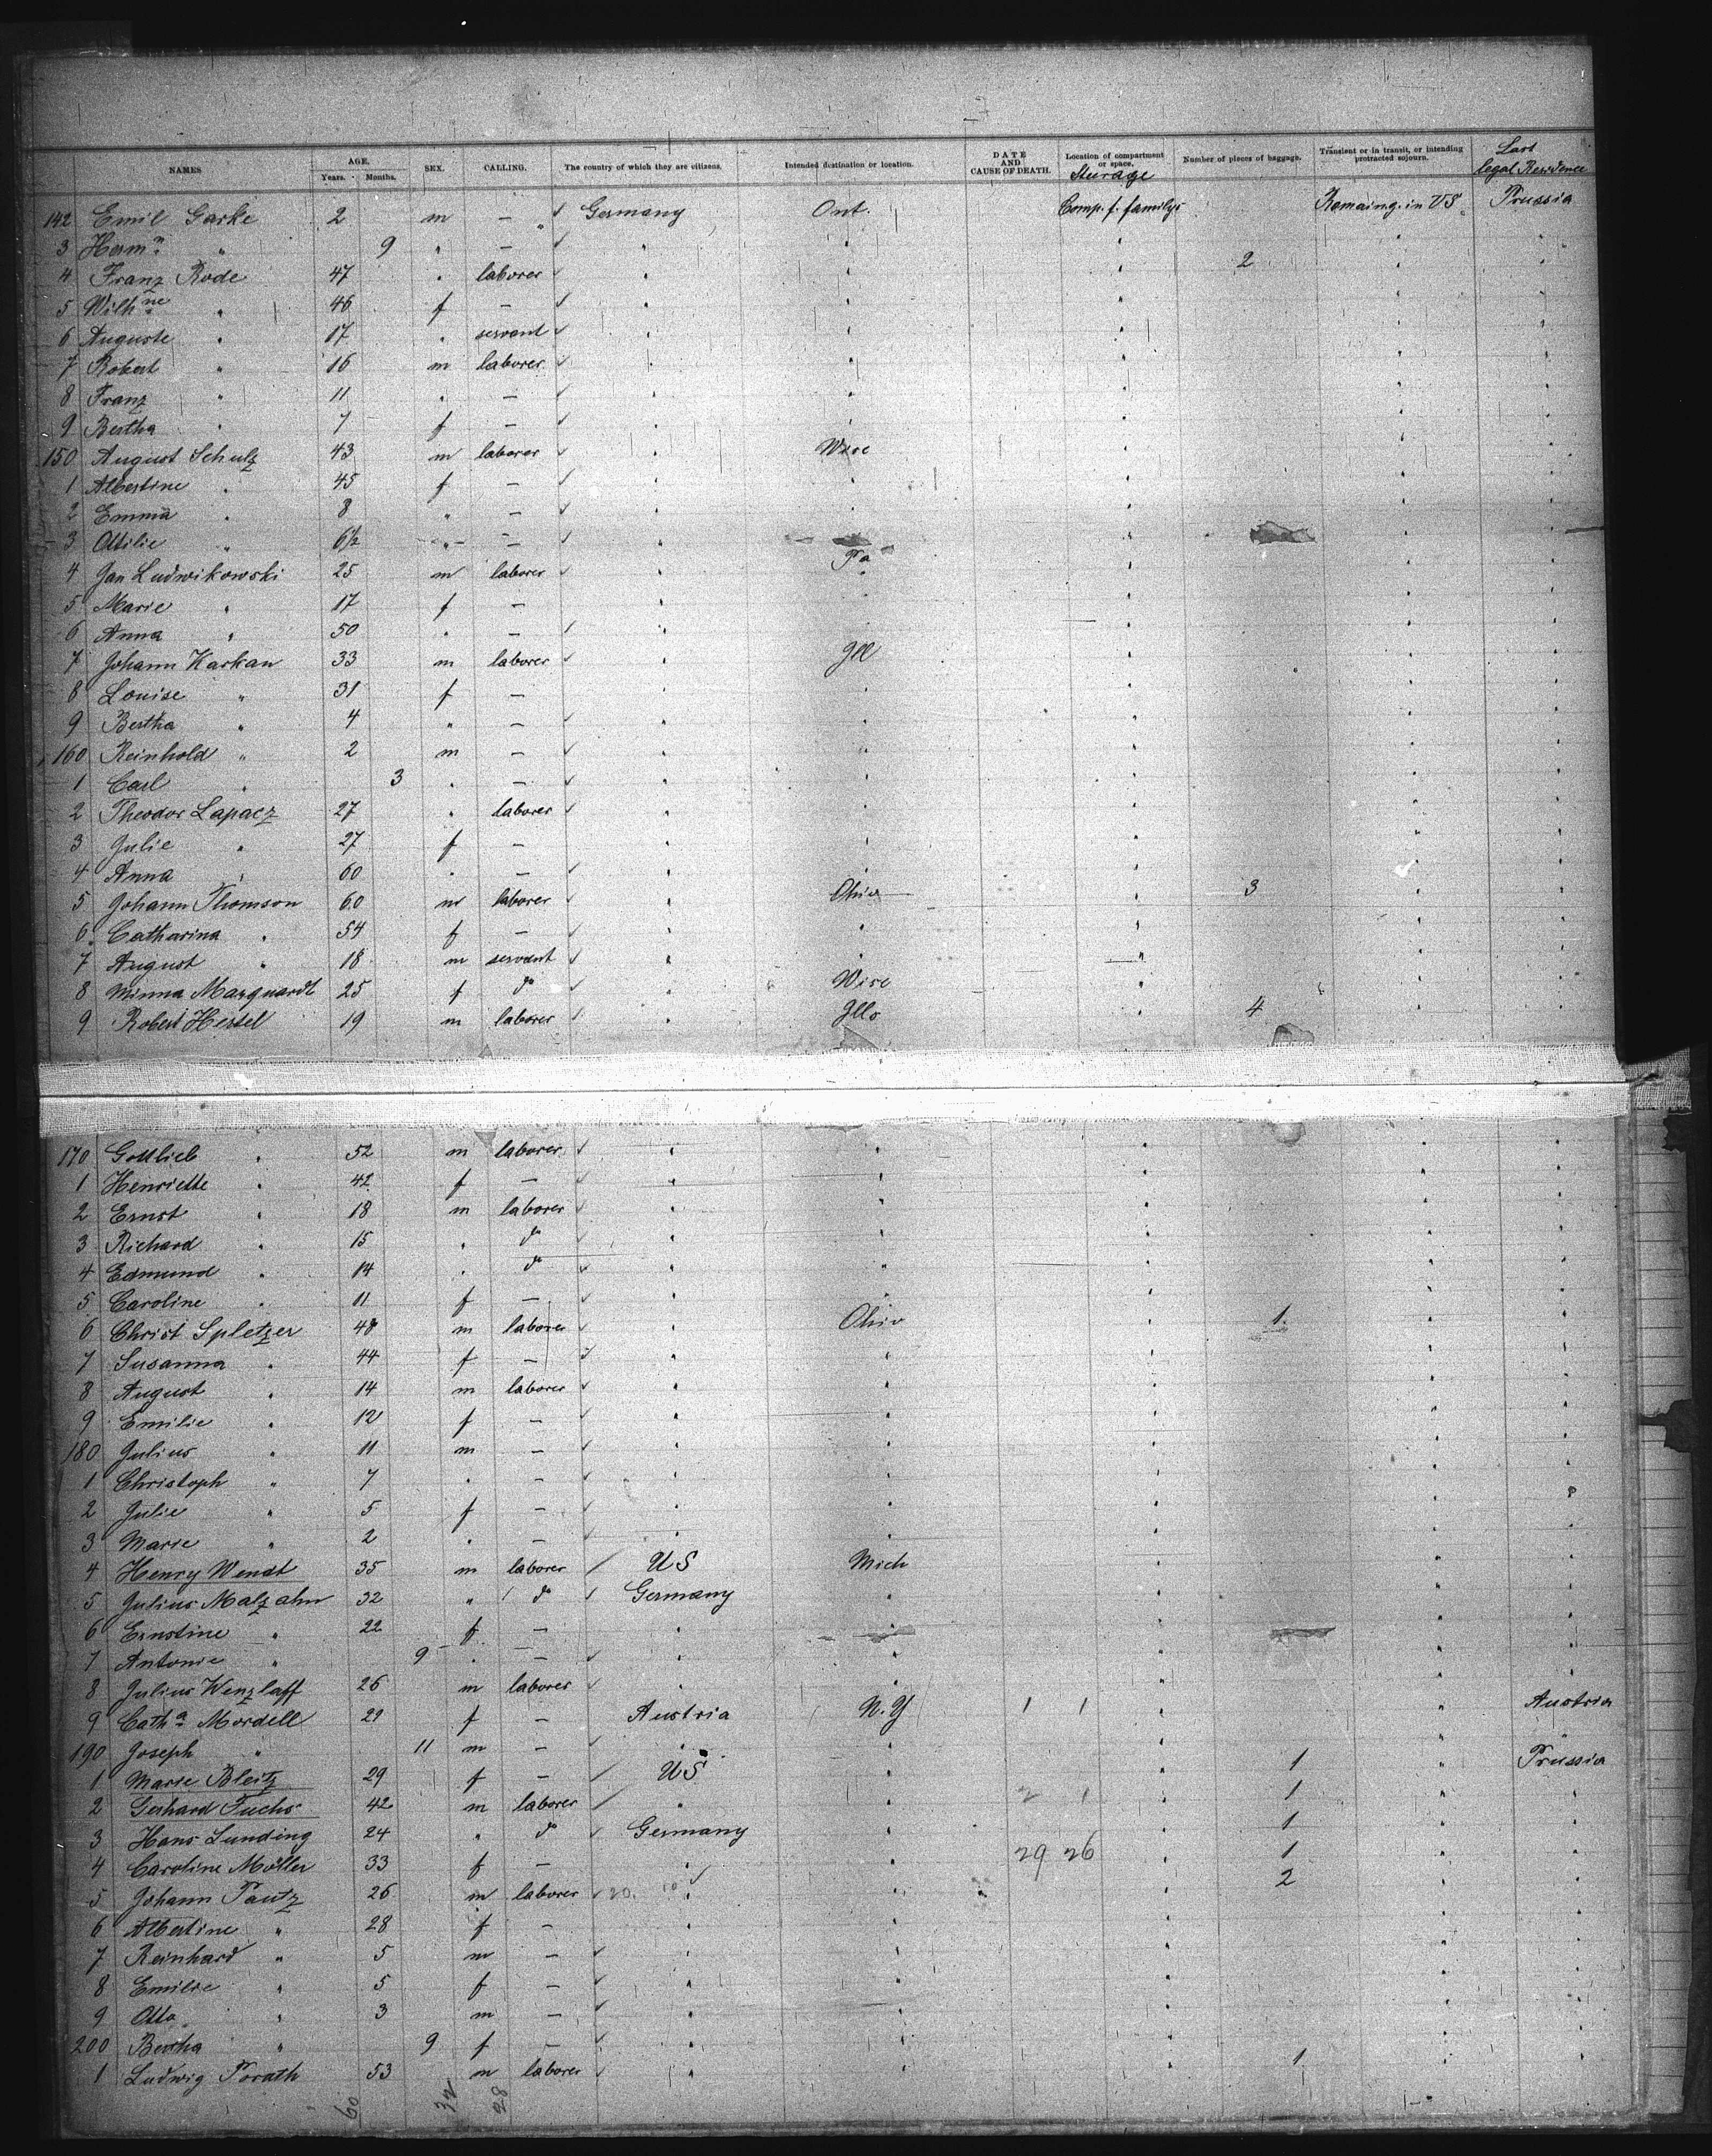 NAMES AGE. Years. Months. SEX. CALLING. The country of which they are citizens. Intended destination or location. DATE AND CAUSE OF DEATH. Location of compartment or space. Number of pieces of baggage. Transient or in transit, or intending protracted sojourn. Last legal Residence
Sturage
142 Emil Garke 2 m — " ✓ Germany Ont. Comp. f. familys Remaing. in US. Prussia
3 Herm n. " 9 " — ✓ " " " " "
4 Franz Rode 47 " laborer ✓ " " " 2 " "
5 Wilh ne " 46 f — ✓ " " " " "
6 Auguste " 17 " servant ✓ " " " " "
7 Robert " 16 m laborer ✓ " " " " "
8 Franz " 11 " — ✓ " " " " "
9 Bertha " 7 f — ✓ " " " " "
150 August Schulz 43 m laborer ✓ " Wisc " " "
1 Albertine " 45 f — ✓ " " " " "
2 Emma " 8 " — ✓ " " " " "
3 Ottilie " 6½ " — ✓ " " " " "
4 Jan Ludwikowski 25 m laborer ✓ " Pa " " "
5 Marie " 17 f — " " " " "
6 Anna " 50 " — ✓ " " " " "
7 Johann Karkan 33 m laborer ✓ " Ill " " "
8 Louise " 31 f — " " " " "
9 Bertha " 4 " — ✓ " " " " "
160 Reinhold " 2 m — ✓ " " " " "
1 Carl " 3 " — ✓ " " " " "
2 Theodor Lapacz 27 " laborer ✓ " " " " "
3 Julie " 27 f — " " " " "
4 Anna " 60 " — ✓ " " " " "
5 Johann Thomson 60 m laborer ✓ " Ohio " 3 " "
6 Catharina " 54 f — ✓ " " " " "
7 August " 18 m servant ✓ " " " " "
8 Minna Marquardt 25 f do ✓ " Wisc " " "
9 Robert Hertel 19 m laborer ✓ " Ills " 4 " "
170 Gottlieb " 52 m laborer ✓ " " " " "
1 Henriette " 42 f — ✓ " " " " "
2 Ernst " 18 m laborer ✓ " " " " "
3 Richard " 15 " do ✓ " " " " "
4 Edmund " 14 " do ✓ " " " " "
5 Caroline " 11 f — ✓ " " " " "
6 Christ Spletzer 48 m laborer ✓ " Ohio " 1 " "
7 Susanna " 44 f — ✓ " " " " "
8 August " 14 m laborer ✓ " " " " "
9 Emilie " 12 f — ✓ " " " " "
180 Julius " 11 m — ✓ " " " " "
1 Christoph " 7 " — ✓ " " " " "
2 Julie " 5 f — ✓ " " " " "
3 Marie " 2 " — ✓ " " " " "
4 Henry Wendt 35 m laborer / US Mich " " "
5 Julius Malzahn 32 " do ✓ Germany " " " "
6 Ernstine " 22 f — " " " " "
7 Antonie " 9 " — ✓ " " " " "
8 Julius Wenzlaff 26 m laborer ✓ " " " " "
9 Cath a Mordell 29 f — Austria N.Y 1 1 " " Austria
190 Joseph " 11 m — ✓ " " " " "
1 Marie Bleitz 29 f — / US " " 1 " Prussia
2 Gerhard Fuchs 42 m laborer / " " 2 1 " 1 " "
3 Hans Lunding 24 " do ✓ Germany " " 1 " "
4 Caroline Möller 33 f — " " 29 26 " 1 " "
5 Johann Pautz 26 m laborer ✓ 20. 10 " " " 2 " "
6 Albertine " 28 f — " " " " "
7 Reinhard " 5 m — ✓ " " " " "
8 Emilie " 5 f — ✓ " " " " "
9 Otto " 3 m — ✓ " " " " "
200 Bertha " 9 f — ✓ " " " " "
1 Ludwig Porath 53 m laborer ✓ " " " 1 " "
60 32 28